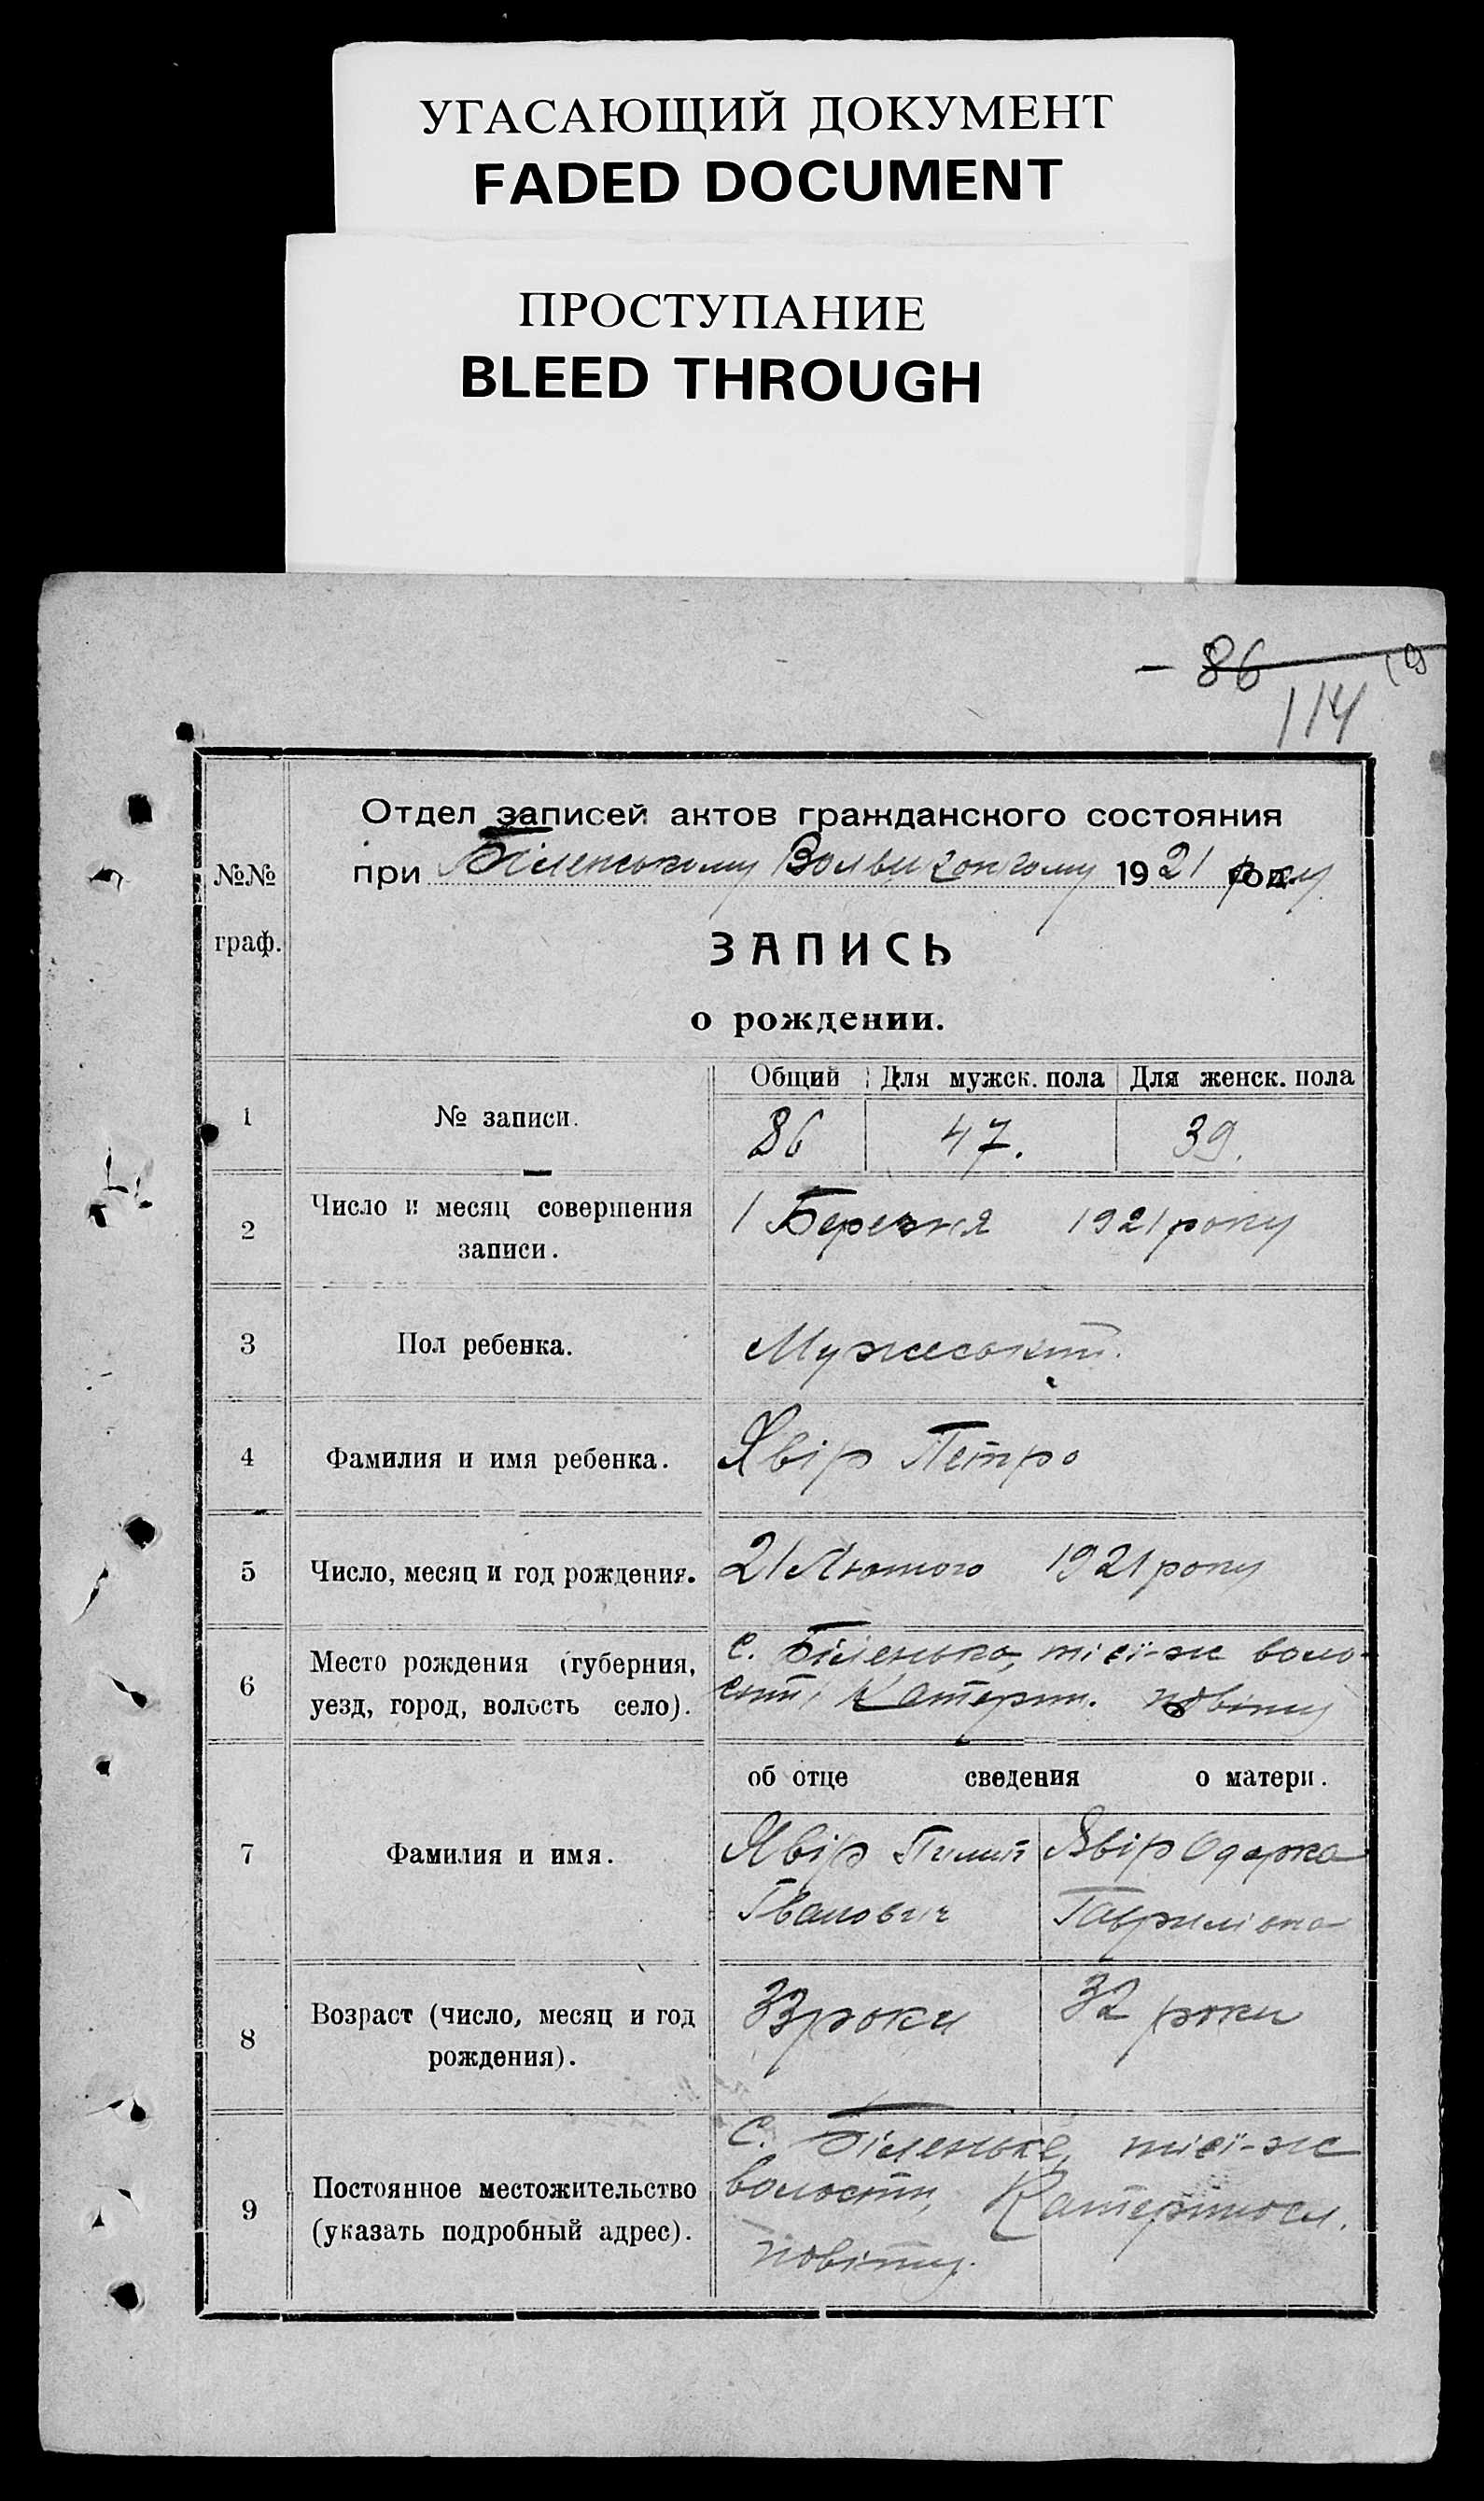 УГАСАЮЩИЙ ДОКУМЕНТ
FADED DOCUMENT
ПРОСТУПАНИЕ
BLEED THROUGH
86
114
Отдел записей актов гражданского состояния
при Біленському 1921 року
№№
граф.
ЗАПИСЬ
о рождении.
Общий Для мужск. пола Для женск. пола
1 № записи. 86 47. 39.
2 Число и месяц совершения
записи.
1 Березня 1921 року
3 Пол ребенка. Мужеський.
4 Фамилия и имя ребенка. Явір Петро
5 Число, месяц и год рождения. 21 Лютого 1921 року
6 Место рождения (губерния,
уезд, город, волость село).
с. Біленько, тієї-ж воло-
сти, Катерин. повіту
об отце сведения о матери.
7 Фамилия и имя.
Явір Пилип Явір Одарка
Іванович Гаврилівна
8 Возраст (число, месяц и год
рождения).
33 роки 32 роки
9 Постоянное местожительство
(указать подробный адрес).
с. Біленьке, тієї-ж
волости, Катериносл.
повіту.